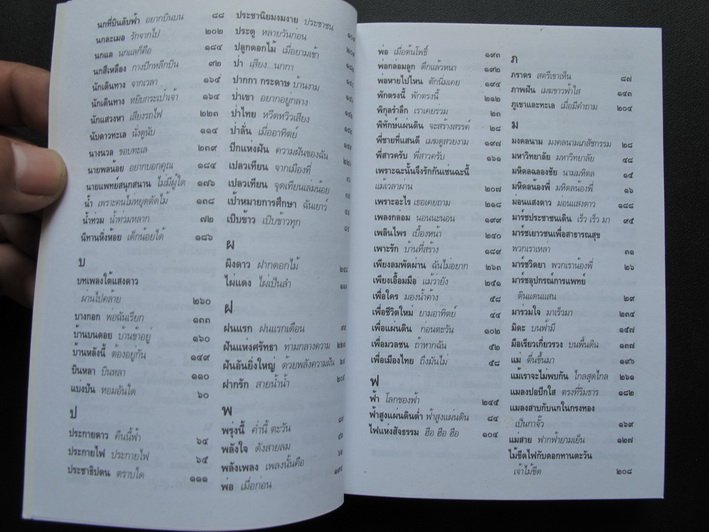 นกที่บินลับฟ้า อยากบินบน ๘๘
นกละเมอ รักจากไป ๒๐๒
นกแล นกแลก็คือ ๑๘๔
นกสีเหลือง กางปีกหลีกบิน ๔๐
นักเดินทาง จากเวลา ๑๖๕
นักเดินทาง หยิบกระเป๋าเจ้า ๑๖๔
นักแสวงหา เสียงรถไฟ ๒๓
นับดาวทะเล นั่งดูนับ ๑๑๔
นางนวล ขอบทะเล
นายพลน้อย อยากบอกคุณ ๑๘๔
นายแพทย์สนุกสนาน ไม่มีผู้ใด ๑๗๖
น้ำ เพราะคนไม่หยุดตัดไม้ ๑๓๘
น้ำท่วม น้ำท่วมหลาก ๗๒
นิทานหิ่งห้อย เด็กน้อยได้ ๑๘๖
บ
บทเพลงใต้แสงดาว
ผ่านไปคล้าย ๒๖๐
บางกอก พอฉันเรียก ๑๓๓
บ้านบนดอย บ้านข้าอยู่ ๑๖๐
บ้านหลังนี้ ต้องอยู่กัน ๑๔๙
บินหลา บินหลา ๑๑๐
แบ่งปัน หอมอันใด ๖๐
ป
ประกายดาว คืนนี้ฟ้า ๖๔
ประกายไฟ ประกายไฟ ๖๕
ประชาธิปตน คราบใด ๑๑๑
ประชานิยมงมงาย ประชาชน
ประตู หลายวันก่อน
ปลูกดอกไม้ เมื่อยามเช้า
ป่า เสียง..นกกา
ปากกา กระดาษ บ้านงาม
ป่าเขา อยากอยู่กลาง
ป่าไทย หวีดหวิวเสียง
ป่าลั่น เมื่ออาทิตย์
ปีกแห่งฝัน ความฝันของฉัน
เปลวเทียน จากเมืองพี่
เปลวเทียน จุดเทียนเล่มน้อย
เป้าหมายการศึกษา ฉันเยาว์
เปิบข้าว เปิบข้าวทุก
ผ
ผิงดาว ฝากดอกไม้
ไผ่แดง ไผ่เป็นลำ
ฝ
ฝนแรก ฝนแรกเดือน
ฝันแห่งศรัทธา ทามกลางความ
ฝันอันยิ่งใหญ่ ด้วยพลังความฝัน
ฝากรัก สายน้ำน้ำ
พ
พรุ่งนี้ ค่ำนี้ ตะวัน
พลังใจ ดังสายลม
พลังเพลง เพลงนั้นคือ
พ่อ เมื่อก่อน
พ่อ เมื่อต้นโพธิ์ ๑๙๓
พ่อกล่อมลูก ดึกแล้วหนา ๑๙๒
พ่อหายไปไหน ตักนิ่มเคย ๑๙๔
พักตรงนี้ พักตรงนี้ ๒๑๒
พิกุลรำลึก เราเคยร่วม ๒๓
พิทักษ์แผ่นดิน จะสร้างสรรค์ ๒๘
พี่ชายที่แสนดี เมฆดูสวยงาม ๑๖๖
พี่สาวครับ พี่สาวครับ ๑๖๑
เพราะฉะนั้นจึงรักกันเช่นฉะนี้
แม้เวลาผ่าน ๒๐๗
เพราะอะไร เธอเคยถาม ๒๑๘
เพลงกล่อม นอนนะนอน ๑๘๙
เพลินไพร เบื้องหน้า ๒๔๐
เพาะรัก บ้านที่สร้าง ๑๘๙
เพียงลมพัดผ่าน ฉันไม่อยาก ๒๖๓
เพียงเอื้อมมือ แม้ว่ายัง ๒๕๐
เพื่อใคร มองน้ำค้าง ๕๘
เพื่อชีวิตใหม่ ยามอาทิตย์ ๔๔
เพื่อแผ่นดิน ก่อนตะวัน ๑๐๒
เพื่อมวลชน ถ้าหากฉัน ๕๒
เพื่อเมืองไทย ถึงฝันไม่ ๕๘
ฟ
ฟ้า โลกของฟ้า ๒๔๕
ฟ้าสูงแผ่นดินต่ำ ฟ้าสูงแผ่นดิน ๘๔
ไฟแห่งสัจธรรม ฮือ ฮือ ฮือ ๑๐๔
ภ
ภราดร สตรีเขาเห็น ๘๗
ภาพฝัน เมฆขาวฟ้าใส ๑๔๓
ภูเขาและทะเล เมื่อมีคำถาม ๒๐๕
ม
มงคลนาม มงคลนามเภสัชกรรม ๒๘
มหาวิทยาลัย มหาวิทยาลัย ๔๘
มหิดลฉลองชัย นามมหิดล ๑๔
มหิดลน้องพี่ มหิดลน้องพี่ ๑๖
ม่อนแสงดาว ม่อนแสงดาว ๑๑๘
มาร์ชประชาชนเดิน เร็ว เร็ว มา ๙๕
มาร์ชเยาวชนเพื่อสาธารณสุข
พวกเราเหล่า ๓๑
มาร์ชวิดยา พวกเราน้องพี่ ๒๖
มาร์ชอุปกรณ์การแพทย์
ดินแดนแสน ๒๙
มาร่วมใจ มาเร็วมา ๒๓
มิตะ บนฟ้ามี ๑๕๗
มือเรียวเกี่ยวรวง บนพื้นดิน ๑๓
แม่ ตื่นขึ้นมา
แม้เราจะไม่พบกัน ไกลสุดไกล ๒๖๑
แมลงปอปีกใส ตรงที่ริมธาร ๑๘๒
แมลงสาบกับนกในกรงทอง
เป็นกาจั๊ว ๑๖๙
แมสาย ฟากฟ้ายามเย็น ๑๒๗
ไม้ขีดไฟกับดอกทานตะวัน
เจ้าไม้ขีด ๒๐๘